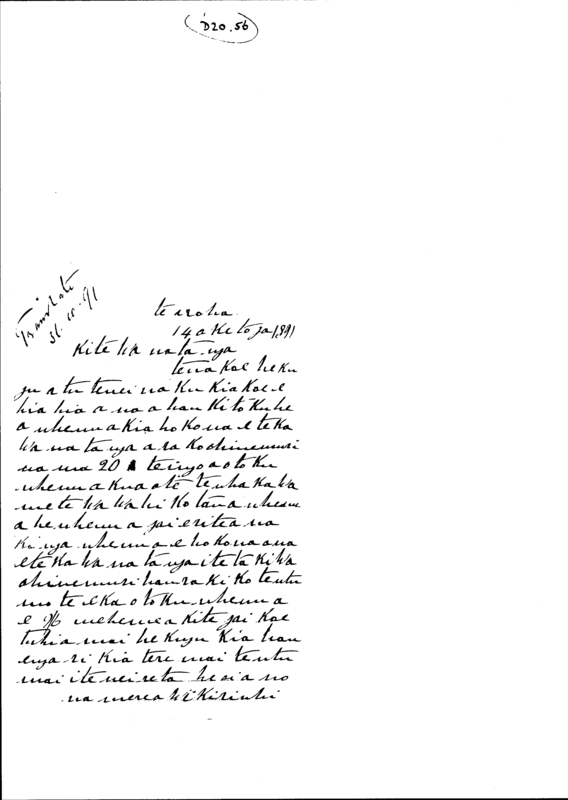 D20.56
Translate
31.10.91
te aroha
14 oketopa 1891
Ki te Kawanatanga
tena Koe he Ku
pu atu tenei na Ku Kia Koe e
hia hia a na a hau Ki to Ku he
a whenua Kia ho Ko na e te Ka
wa na ta nga a ra Ko ohinemuri
na ma 20 te ingoa o to Ku
whenua
me te wa wa hi Ko taua whenu
a he whenua pai e rite a na
Ki nga whenua e ho Kona ana
e te Ka wa na ta nga i te ta Ki wa
ohinemuri hau ra Ki Ko te utu
mo te eKa o to Ku whenua
e me he mea Kite pai Koe
tuhia mai he Kupu Kia hau
enga ri Kia tere mai te utu
mai i te nei reta heoi a no
na merea WiKiriwhi